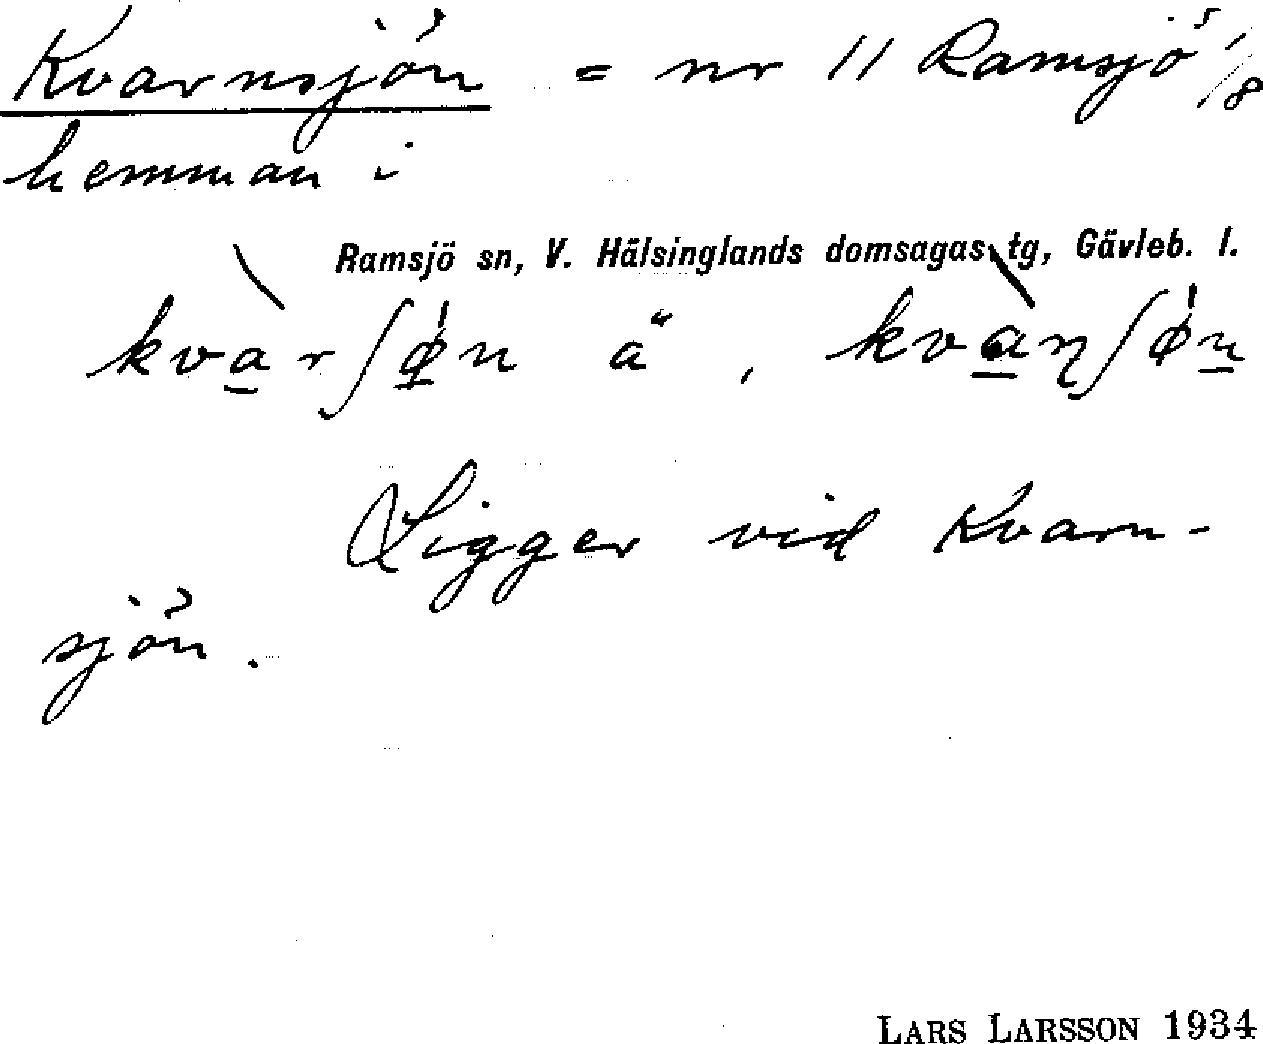 Kvarnsjön = nr 11 Ramsjö 1/8
hemman i
Ramsjö sn, V. Hälsinglands domsagas tg, Gävleb. l.
kva̠rʃø̠n ä, kva̠ɳʃøn̠
Ligger vid Kvarn-
sjön.
LARS LARSSON 1934